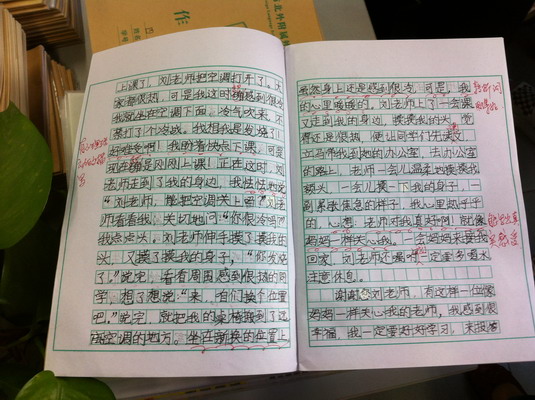 作
上课了，刘老师把空调打开了。大
家都很热，可是我这时确感到很冷
我就坐在空调下面，冷气吹来，不
禁打了个冷战。我想我是发烧了！
好难受啊！我盼着快点下课，可是
现在确是刚刚上课！正在这时，刘
老师走到了我的身边，我怯怯地说
“刘老师，能把空调关上吗？”刘老
师看看我，关切地问：“你很冷吗？”
我点点头。刘老师伸手摸了摸我的
头，又摸了摸我的身子，“你发烧
了。”说完，看看周围感到很热的同
学，想了想说：“来，咱们换个位置
吧。”说完，就把我的桌椅搬到了远
离空调的地方。坐在新换的位置上
虽然身上还是感到很冷，可是，我
的心里暖暖的。刘老师上了一会课
又走到我的身边，摸摸我的头，觉
得还是很热，便让同学们先读
立马带我到她的办公室。去办公室
的路上，老师一会儿温柔地摸摸我
额头，一会儿摸一下我的身子，一
副紧张焦急的样子。我心里热乎乎
的，心想：老师对我真好啊！就像
妈妈一样关心我。一会妈妈来接我
回家，刘老师还嘱咐一定要多喝水
注意休息。
谢谢您刘老师，有这样一位像
妈妈一样关心我的老师，我感到很
幸福，我一定要好好学习，来报答